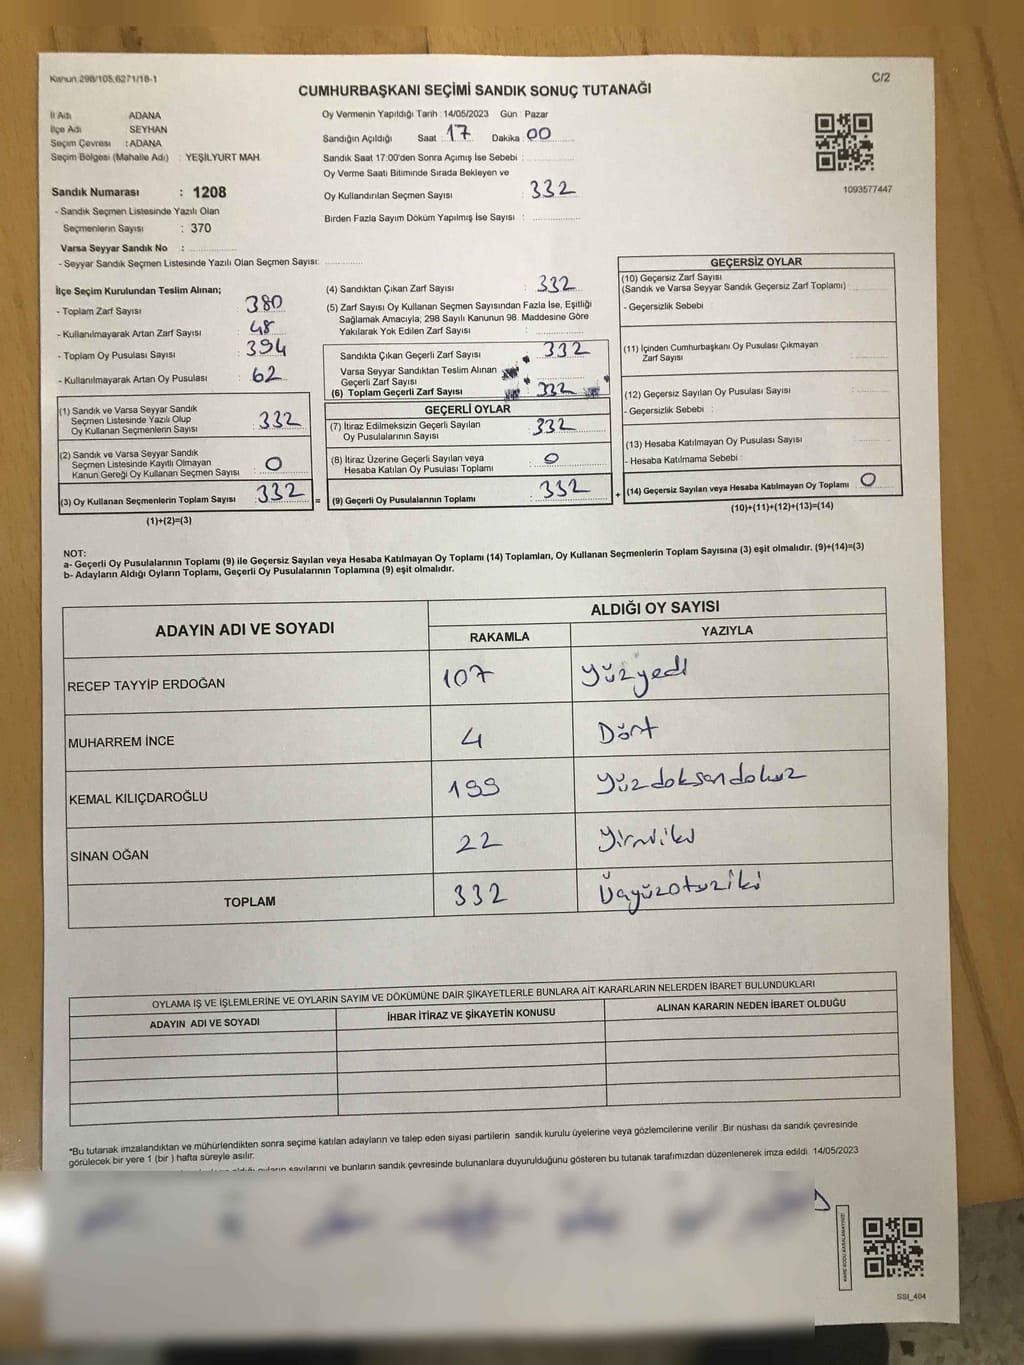 Kanun 298/105,6271/18-1
C/2
CUMHURBAŞKANI SEÇİMİ SANDIK SONUÇ TUTANAĞI
İl Adı : ADANA
İlçe Adı : SEYHAN
Seçim Çevresi : ADANA
Seçim Bölgesi (Mahalle Adı) : YEŞİLYURT MAH.
Sandık Numarası : 1208
- Sandık Seçmen Listesinde Yazılı Olan
Seçmenlerin Sayısı : 370
Varsa Seyyar Sandık No :
- Seyyar Sandık Seçmen Listesinde Yazılı Olan Seçmen Sayısı:
Oy Vermenin Yapıldığı Tarih : 14/05/2023 Gün : Pazar
Sandığın Açıldığı Saat 17 Dakika 00
Sandık Saat 17:00'den Sonra Açımış İse Sebebi :
Oy Verme Saati Bitiminde Sırada Bekleyen ve
Oy Kullandırılan Seçmen Sayısı : 332
Birden Fazla Sayım Döküm Yapılmış İse Sayısı :
1093577447
İlçe Seçim Kurulundan Teslim Alınan;
- Toplam Zarf Sayısı : 380
- Kullanılmayarak Artan Zarf Sayısı : 48
- Toplam Oy Pusulası Sayısı : 394
- Kullanılmayarak Artan Oy Pusulası : 62
(1) Sandık ve Varsa Seyyar Sandık
Seçmen Listesinde Yazılı Olup
Oy Kullanan Seçmenlerin Sayısı : 332
(2) Sandık ve Varsa Seyyar Sandık
Seçmen Listesinde Kayıtlı Olmayan
Kanun Gereği Oy Kullanan Seçmen Sayısı : 0
(3) Oy Kullanan Seçmenlerin Toplam Sayısı : 332
(1)+(2)=(3)
(4) Sandıktan Çıkan Zarf Sayısı : 332
(5) Zarf Sayısı Oy Kullanan Seçmen Sayısından Fazla İse, Eşitliği
Sağlamak Amacıyla; 298 Sayılı Kanunun 98. Maddesine Göre
Yakılarak Yok Edilen Zarf Sayısı :
Sandıkta Çıkan Geçerli Zarf Sayısı : 332
Varsa Seyyar Sandıktan Teslim Alınan
Geçerli Zarf Sayısı
(6) Toplam Geçerli Zarf Sayısı 332
GEÇERLİ OYLAR
(7) İtiraz Edilmeksizin Geçerli Sayılan
Oy Pusulalarının Sayısı : 332
(8) İtiraz Üzerine Geçerli Sayılan veya
Hesaba Katılan Oy Pusulası Toplamı : 0
= (9) Geçerli Oy Pusulalarının Toplamı : 332
GEÇERSİZ OYLAR
(10) Geçersiz Zarf Sayısı
(Sandık ve Varsa Seyyar Sandık Geçersiz Zarf Toplamı) :
- Geçersizlik Sebebi :
(11) İçinden Cumhurbaşkanı Oy Pusulası Çıkmayan
Zarf Sayısı :
(12) Geçersiz Sayılan Oy Pusulası Sayısı :
- Geçersizlik Sebebi :
(13) Hesaba Katılmayan Oy Pusulası Sayısı :
- Hesaba Katılmama Sebebi :
+ (14) Geçersiz Sayılan veya Hesaba Katılmayan Oy Toplamı : 0
(10)+(11)+(12)+(13)=(14)
NOT:
a- Geçerli Oy Pusulalarının Toplamı (9) ile Geçersiz Sayılan veya Hesaba Katılmayan Oy Toplamı (14) Toplamları, Oy Kullanan Seçmenlerin Toplam Sayısına (3) eşit olmalıdır. (9)+(14)=(3)
b- Adayların Aldığı Oyların Toplamı, Geçerli Oy Pusulalarının Toplamına (9) eşit olmalıdır.
ADAYIN ADI VE SOYADI
ALDIĞI OY SAYISI
RAKAMLA YAZIYLA
RECEP TAYYİP ERDOĞAN 107 Yüzyedi
MUHARREM İNCE 4 Dört
KEMAL KILIÇDAROĞLU 199 Yüzdoksandokuz
SİNAN OĞAN 22 Yirmiiki
TOPLAM 332 Üçyüzotuziki
OYLAMA İŞ VE İŞLEMLERİNE VE OYLARIN SAYIM VE DÖKÜMÜNE DAİR ŞİKAYETLERLE BUNLARA AİT KARARLARIN NELERDEN İBARET BULUNDUKLARI
ADAYIN ADI VE SOYADI İHBAR İTİRAZ VE ŞİKAYETİN KONUSU ALINAN KARARIN NEDEN İBARET OLDUĞU
*Bu tutanak imzalandıktan ve mühürlendikten sonra seçime katılan adayların ve talep eden siyasi partilerin sandık kurulu üyelerine veya gözlemcilerine verilir .Bir nüshası da sandık çevresinde
görülecek bir yere 1 (bir ) hafta süreyle asılır.
sayılarını ve bunların sandık çevresinde bulunanlara duyurulduğunu gösteren bu tutanak tarafımızdan düzenlenerek imza edildi. 14/05/2023
KARE KODU KARALAMAYINIZ!
SSI_404